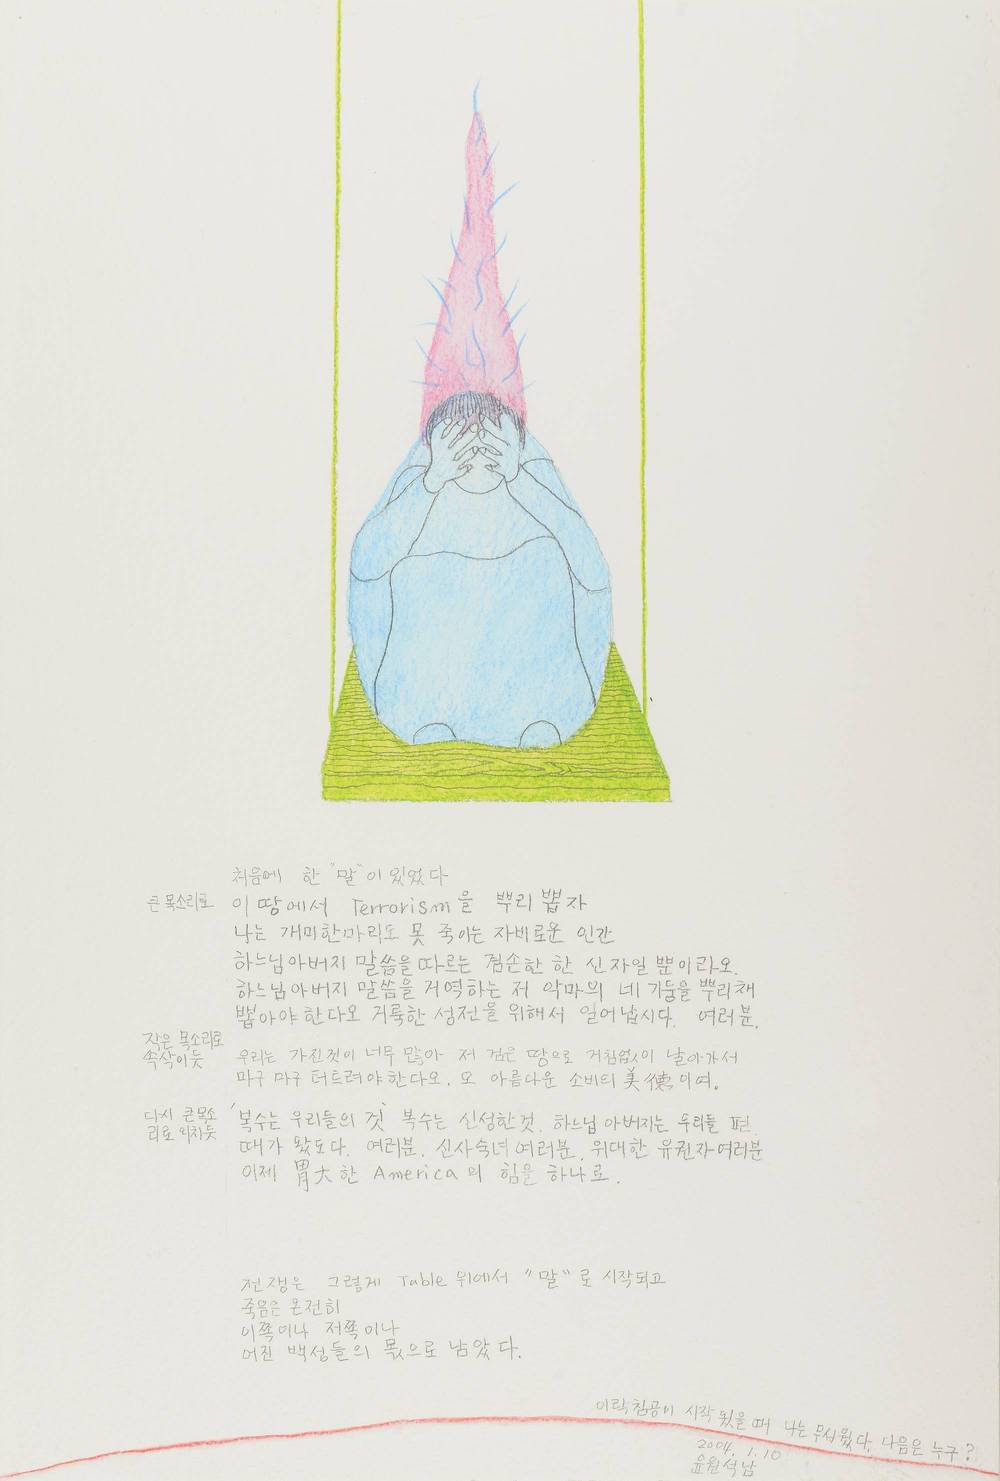 처음에 한 "말"이 있었다
큰 목소리로 이 땅에서 Terrorism을 뿌리 뽑자
나는 개미한마리도 못 죽이는 자비로운 인간
하느님아버지 말씀을 따르는 겸손한 한 신자일 뿐이라오.
하느님아버지 말씀을 거역하는 저 악마의 네 기둥을 뿌리채
뽑아야 한다오 거룩한 성전을 위해서 일어납시다. 여러분.
작은 목소리로
속삭이듯
우리는 가진것이 너무 많아 저 검은 땅으로 거침없이 날아가서
마구 마구 터트려야한다오. 오 아름다운 소비의 美德이여.
다시 큰목소
리로 외치듯
'복수는 우리들의 것' 복수는 신성한것. 하느님 아버지는 우리들 편.
때가 왔도다. 여러분. 신사숙녀여러분. 위대한 유권자여러분
이제 胃大한 America의 힘을 하나로.
전쟁은 그렇게 Table 위에서 "말"로 시작되고
죽음은 온전히
이쪽이나 저쪽이나
어진 백성들의 몫으로 남았다.
이락침공이 시작됬을때 나는 무서웠다. 다음은 누구?
2004. 1. 10
윤석남